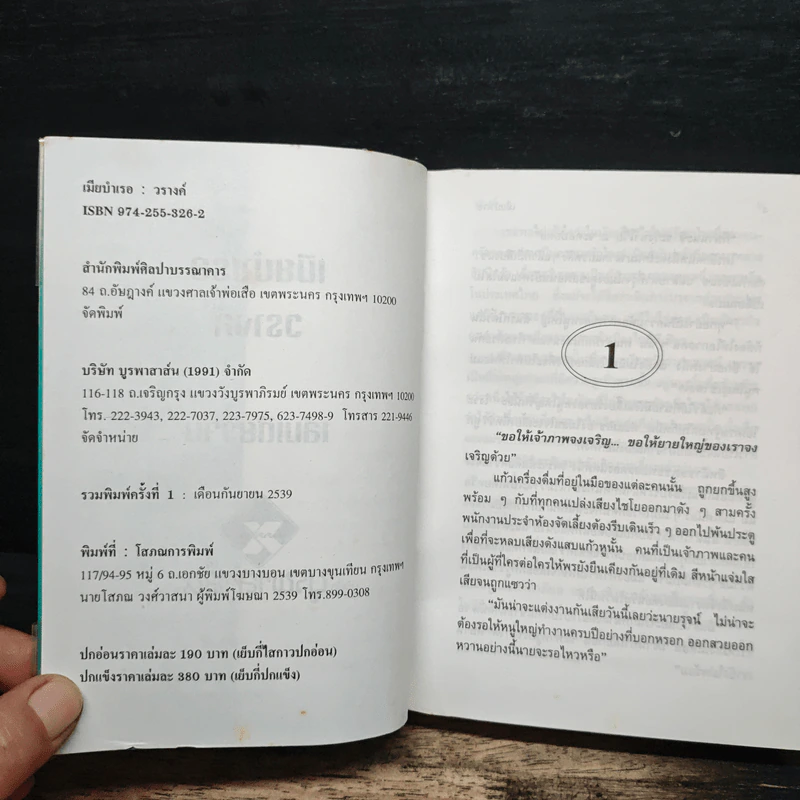 เมียบำเรอ : วรางค์
ISBN 974-255-326-2
สำนักพิมพ์ศิลปาบรรณาคาร
84 ถ.อัษฎางค์ แขวงศาลเจ้าพ่อเสือ เขตพระนคร กรุงเทพฯ 10200
จัดพิมพ์
บริษัท บูรพาสาส์น (1991) จำกัด
116-118 ถ.เจริญกรุง แขวงวังบูรพาภิรมย์ เขตพระนคร กรุงเทพฯ 10200
โทร. 222-3943, 222-7037, 223-7975, 623-7498-9 โทรสาร 221-9446
จัดจำหน่าย
รวมพิมพ์ครั้งที่ 1 : เดือนกันยายน 2539
พิมพ์ที่ : โสภณการพิมพ์
117/94-95 หมู่ 6 ถ.เอกชัย แขวงบางบอน เขตบางขุนเทียน กรุงเทพฯ
นายโสภณ วงศ์วาสนา ผู้พิมพ์โฆษณา 2539 โทร.899-0308
ปกอ่อนราคาเล่มละ 190 บาท (เย็บกี่ไสกาวปกอ่อน)
ปกแข็งราคาเล่มละ 380 บาท (เย็บกี่ปกแข็ง)
1
“ขอให้เจ้าภาพจงเจริญ... ขอให้ยายใหญ่ของเราจง
เจริญด้วย”
แก้วเครื่องดื่มที่อยู่ในมือของแต่ละคนนั้น ถูกยกขึ้นสูง
พร้อม ๆ กับที่ทุกคนเปล่งเสียงไชโยออกมาดัง ๆ สามครั้ง
พนักงานประจำห้องจัดเลี้ยงต้องรีบเดินเร็ว ๆ ออกไปพ้นประตู
เพื่อที่จะหลบเสียงดังแสบแก้วหูนั้น คนที่เป็นเจ้าภาพและคน
ที่เป็นผู้ที่ใครต่อใครให้พรยังยืนเคียงกันอยู่ที่เดิม สีหน้าแจ่มใส
เสียจนถูกแซวว่า
“มันน่าจะแต่งงานกันเสียวันนี้เลยว่ะนายรุจน์ ไม่น่าจะ
ต้องรอให้หนูใหญ่ทำงานครบปีอย่างที่บอกหรอก ออกสวยออก
หวานอย่างนี้นายจะรอไหวหรือ”